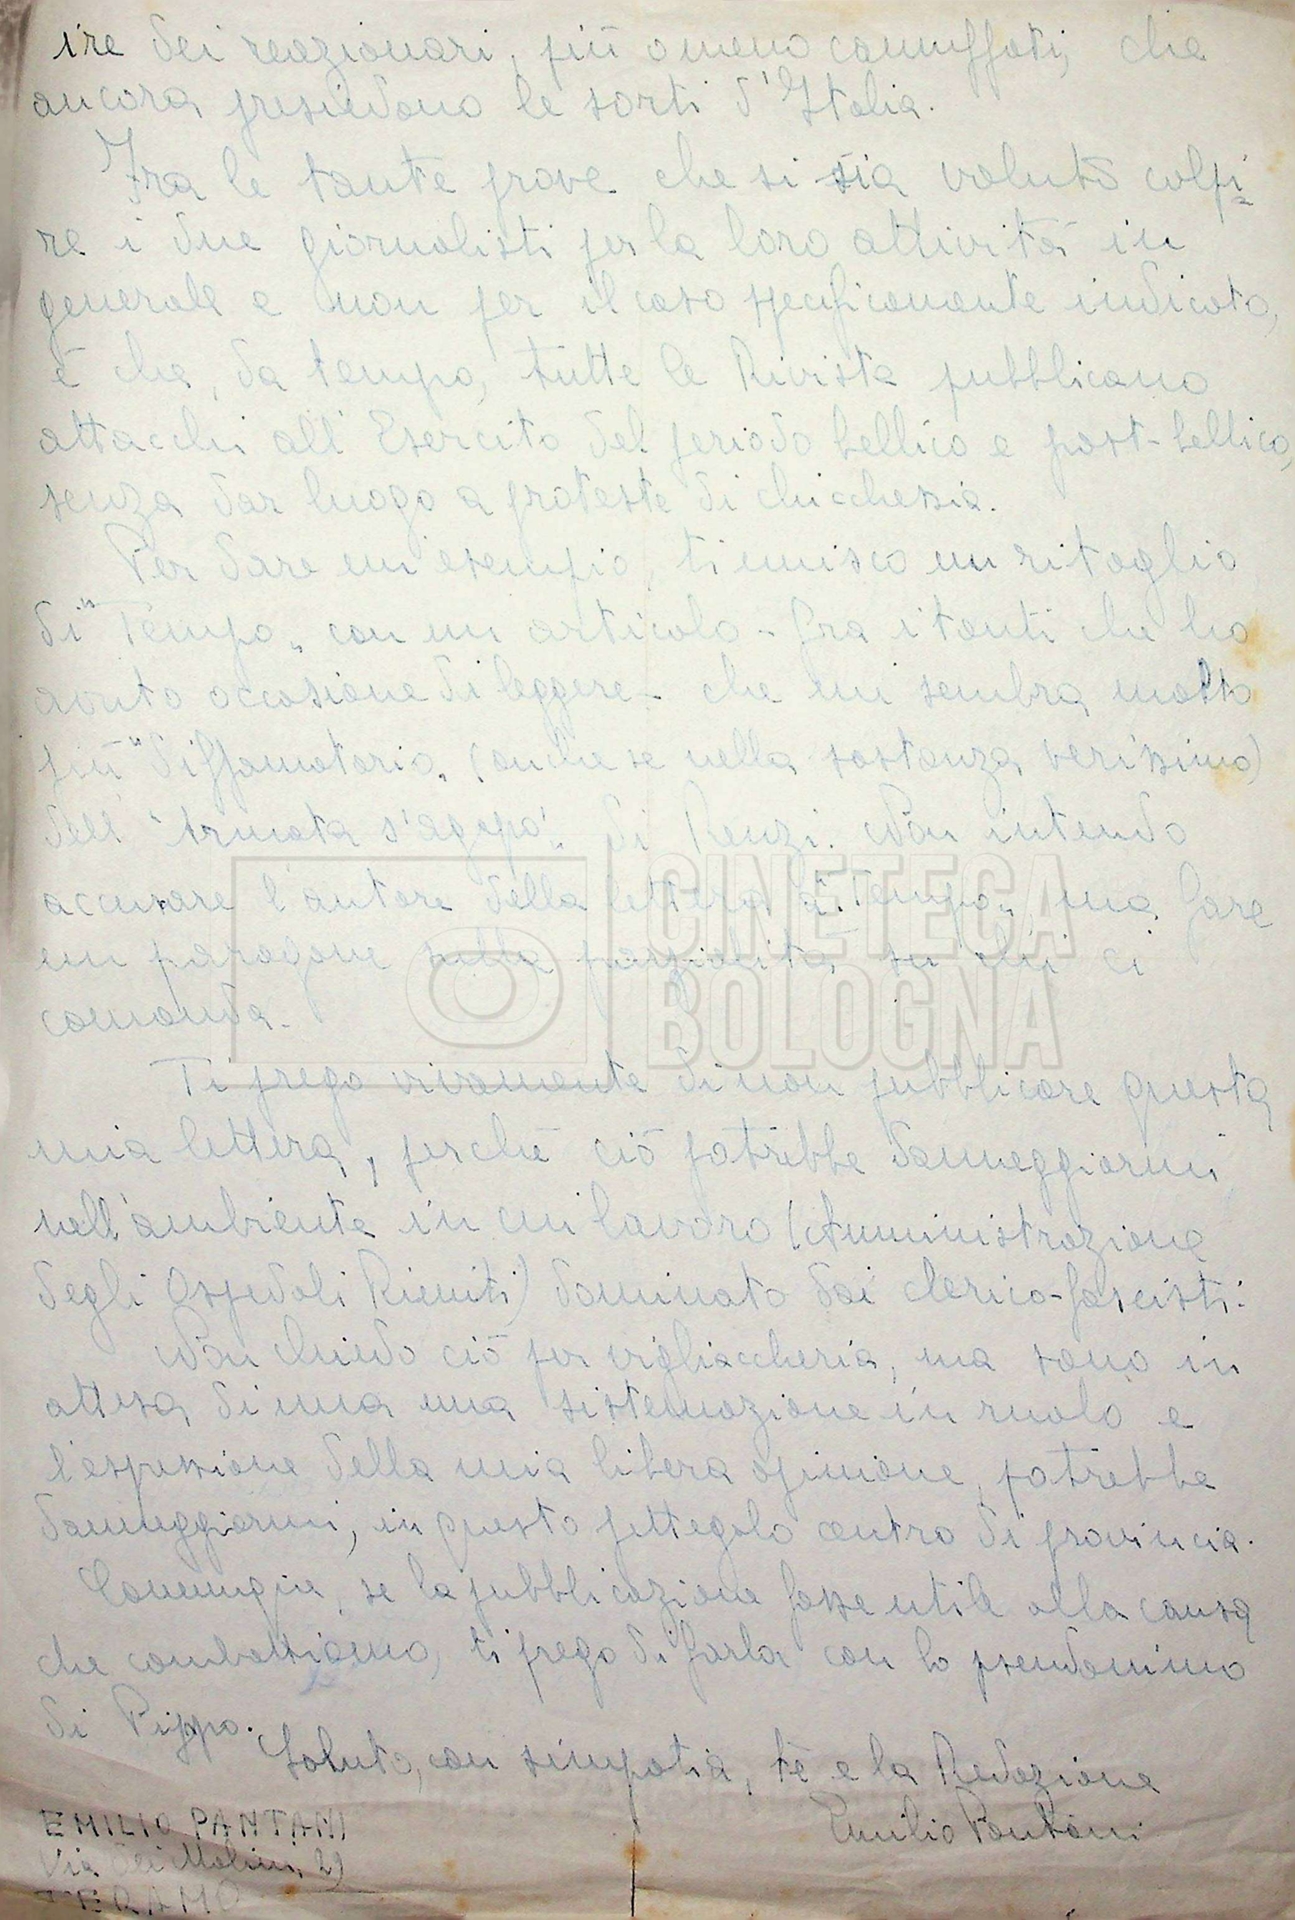 ire dei reazionari, più o meno camuffati, che
ancora presiedono le sorti d'Italia.
Fra le tante prove che si sia voluto colpi
re i due giornalisti per la loro attività in
generale e non per il caso specificamente indicato,
è che, da tempo, tutte le Riviste pubblicano
attacchi all'Esercito del periodo bellico e post-bellico,
senza dar luogo a proteste di chicchessia.
Per dare un'esempio, ti unisco un ritaglio
di "Tempo" con un articolo - fra i tanti che ho
avuto occasione di leggere - che mi sembra molto
più "diffamatorio" (anche se nella sostanza verissimo)
dell' "Armata s'agapò" di Renzi. Non intendo
accusare l'autore della lettera a "Tempo", ma fare
un paragone sulla parzialità di chi ci
comanda.
Ti prego vivamente di non pubblicare questa
mia lettera, perchè ciò potrebbe danneggiarmi
nell'ambiente in cui lavoro (Amministrazione
degli Ospedali Riuniti) dominato dai clerico-fascisti.
Non chiedo ciò per vigliaccheria, ma sono in
attesa di una mia sistemazione in ruolo e
l'espressione della mia libera opinione, potrebbe
danneggiarmi, in questo pettegolo centro di provincia.
Comunque, se la pubblicazione fosse utile alla causa
che combattiamo, ti prego di farla con lo pseudonimo
di Pippo.
Saluto, con simpatia, te e la Redazione
Emilio Pantani
EMILIO PANTANI
Via dei Molini, 21
TERAMO
CINETECA
BOLOGNA